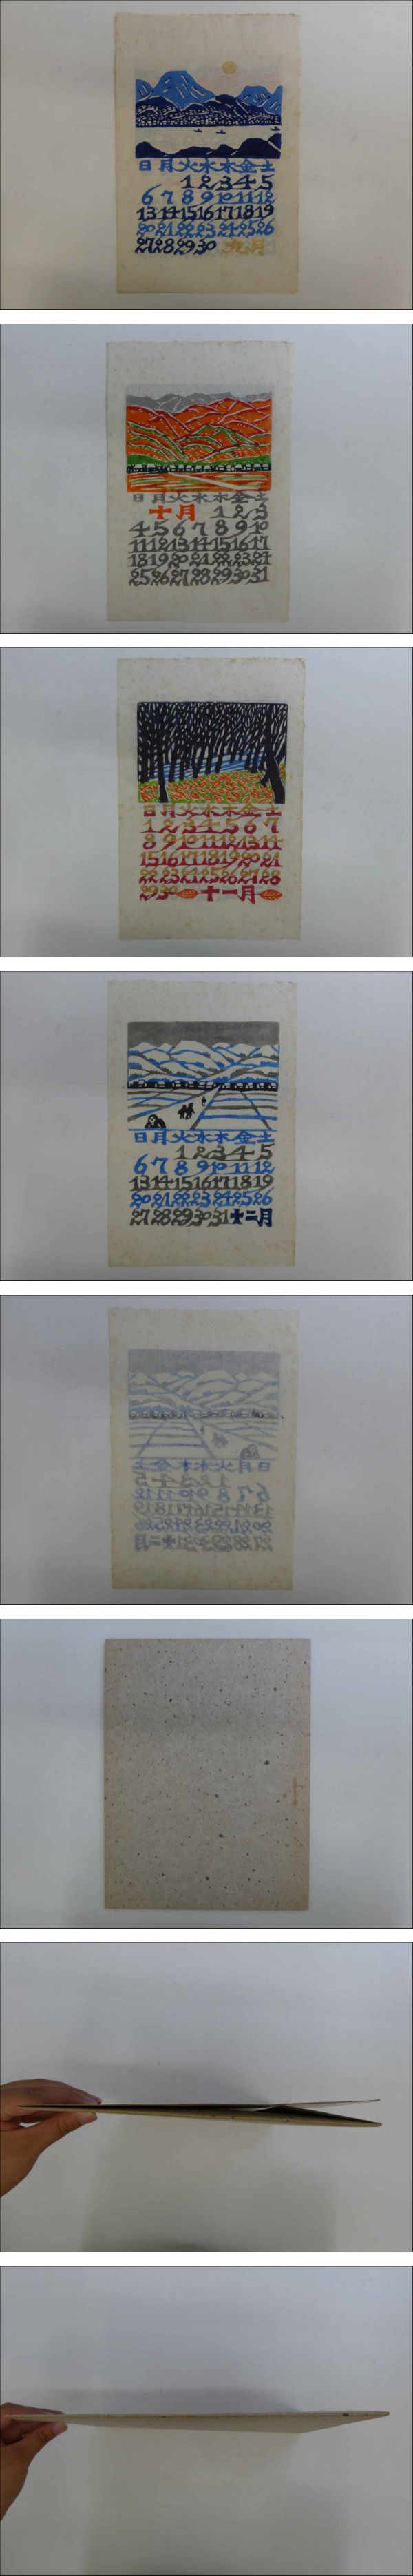 日月火水木金土
1 2 3 4 5
6 7 8 9 10 11 12
13 14 15 16 17 18 19
20 21 22 23 24 25 26
27 28 29 30 九月
日月火水木金土
十月 1 2 3
4 5 6 7 8 9 10
11 12 13 14 15 16 17
18 19 20 21 22 23 24
25 26 27 28 29 30 31
日月火水木金土
1 2 3 4 5 6 7
8 9 10 11 12 13 14
15 16 17 18 19 20 21
22 23 24 25 26 27 28
29 30 十一月
日月火水木金土
1 2 3 4 5
6 7 8 9 10 11 12
13 14 15 16 17 18 19
20 21 22 23 24 25 26
27 28 29 30 31 十二月